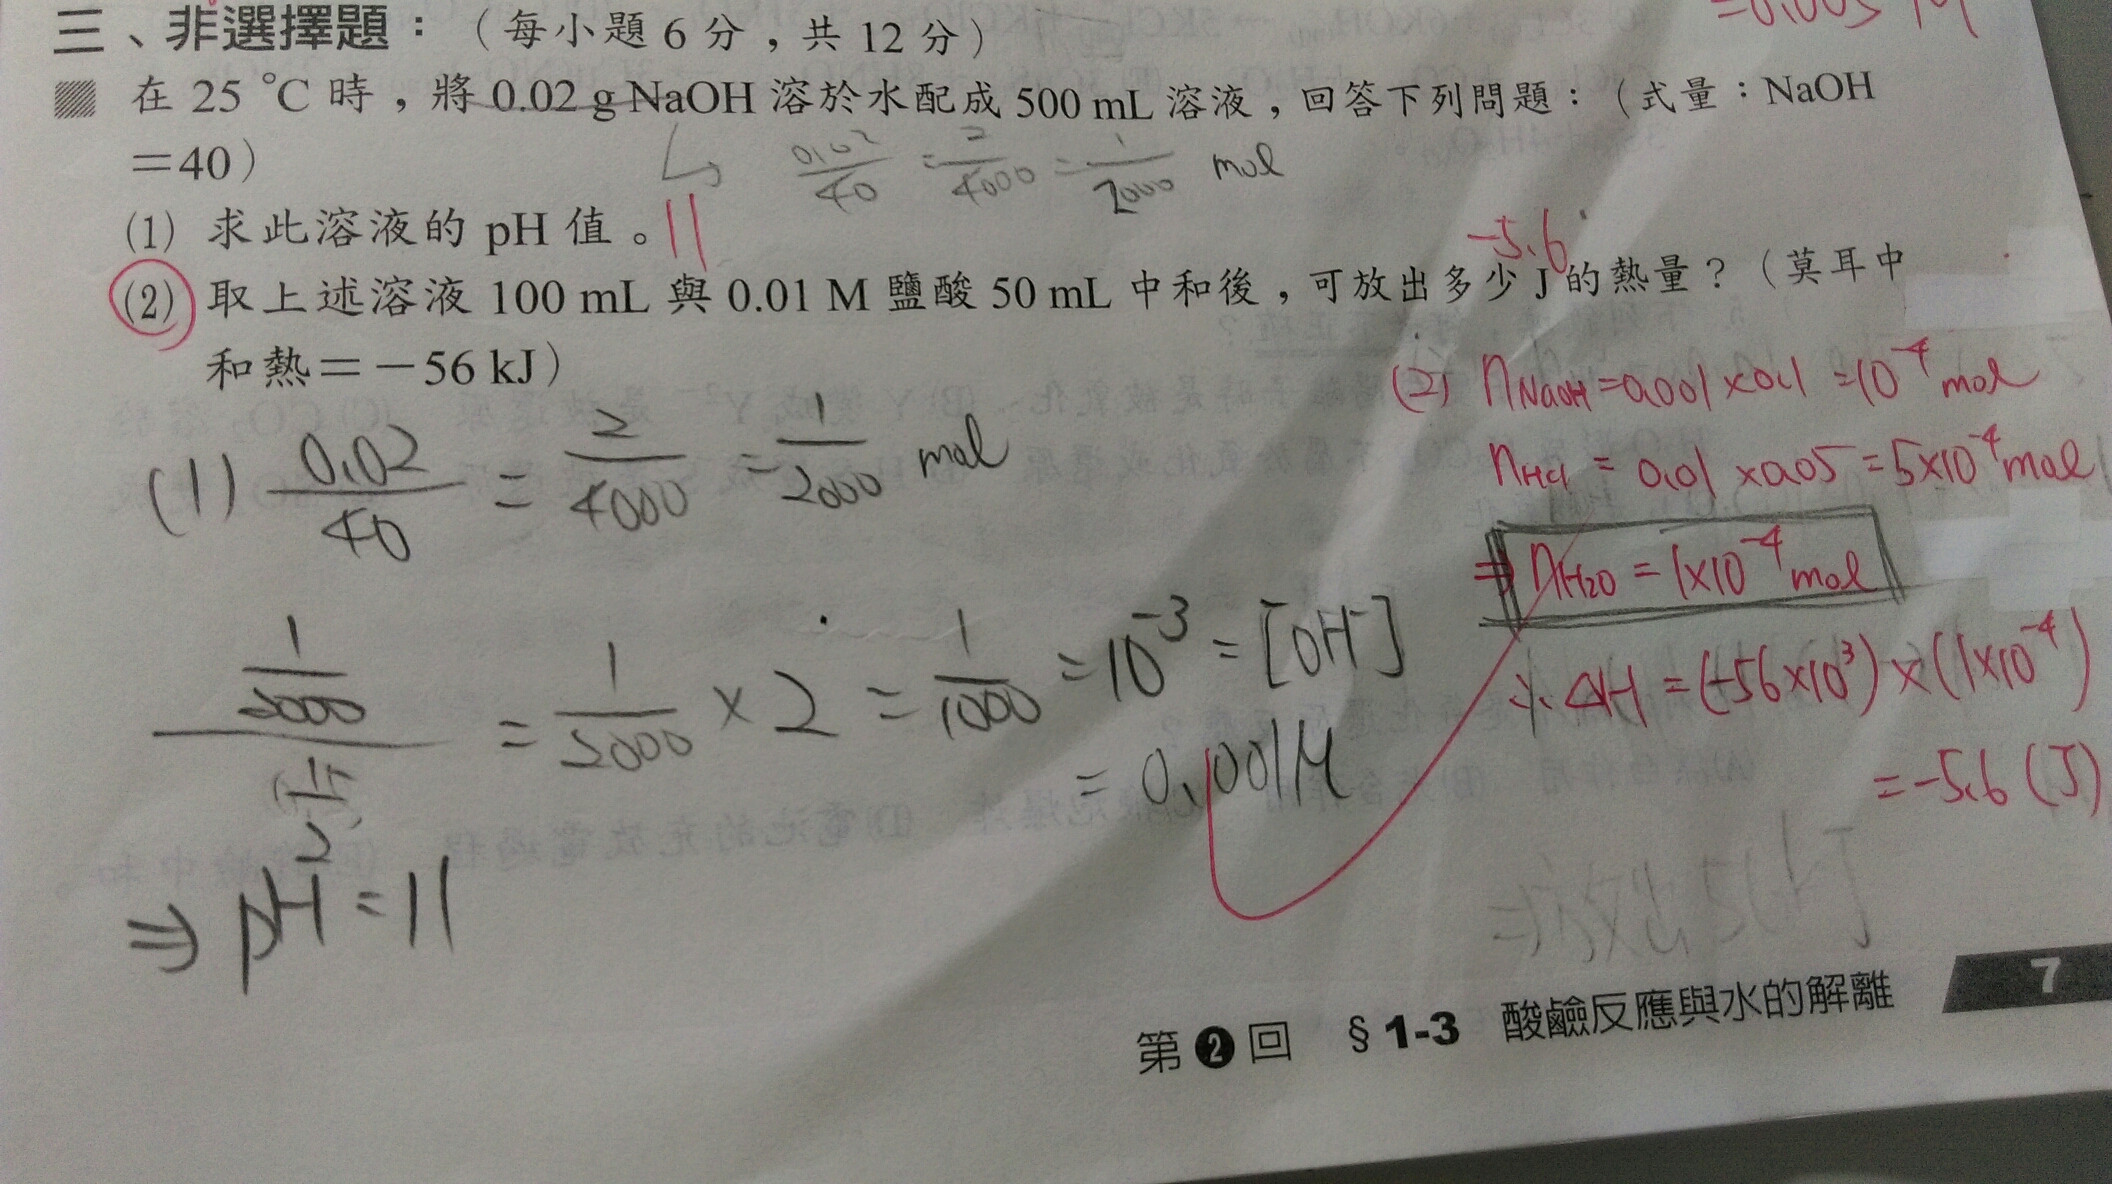 =0.005 M
三、非選擇題：（每小題6分，共12分）
在 25 ℃ 時，將 0.02 g NaOH 溶於水配成 500 mL 溶液，回答下列問題：（式量：NaOH
＝40）
0.02/40 = 2/4000 = 1/2000 mol
(1) 求此溶液的 pH 值。11
-5.6
(2) 取上述溶液 100 mL 與 0.01 M 鹽酸 50 mL 中和後，可放出多少 J 的熱量？（莫耳中
和熱＝－56 kJ）
(1) 0.02/40 = 2/4000 = 1/2000 mol
(1/2000)/(1/2) = 1/2000 × 2 = 1/1000 = 10⁻³ = [OH⁻]
= 0.001M
⇒ pH = 11
(2) nNaOH = 0.001 × 0.1 = 10⁻⁴ mol
nHCl = 0.01 × 0.05 = 5×10⁻⁴ mol
⇒ nH2O = 1×10⁻⁴ mol
∴ ΔH = (-56×10³) × (1×10⁻⁴)
= -5.6 (J)
第❷回 §1-3 酸鹼反應與水的解離 7